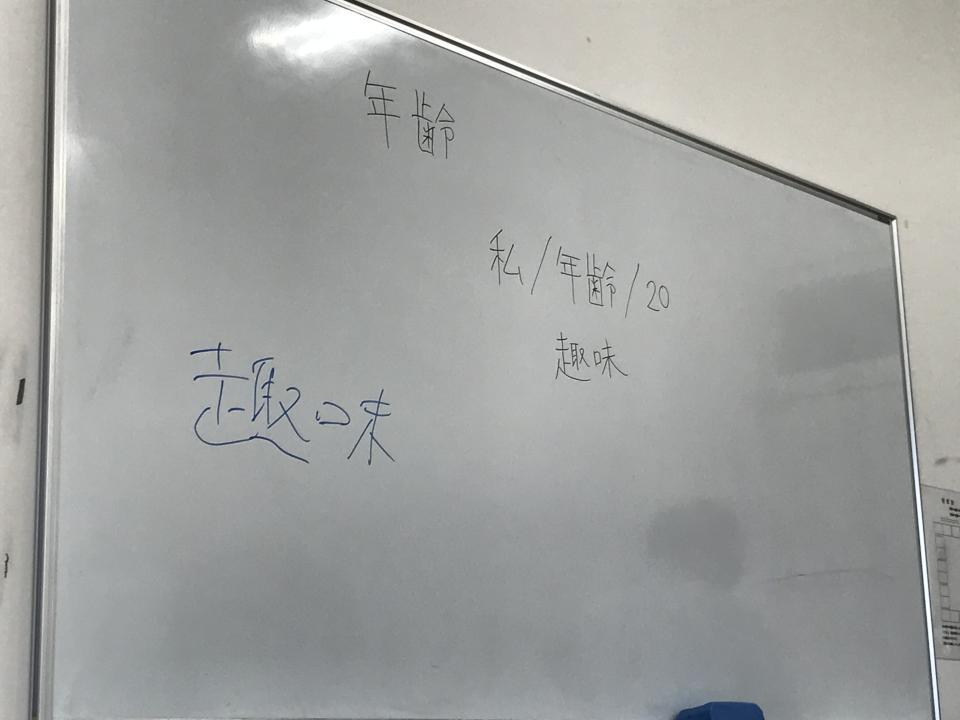 年齢
私/年齢/20
趣味
趣味